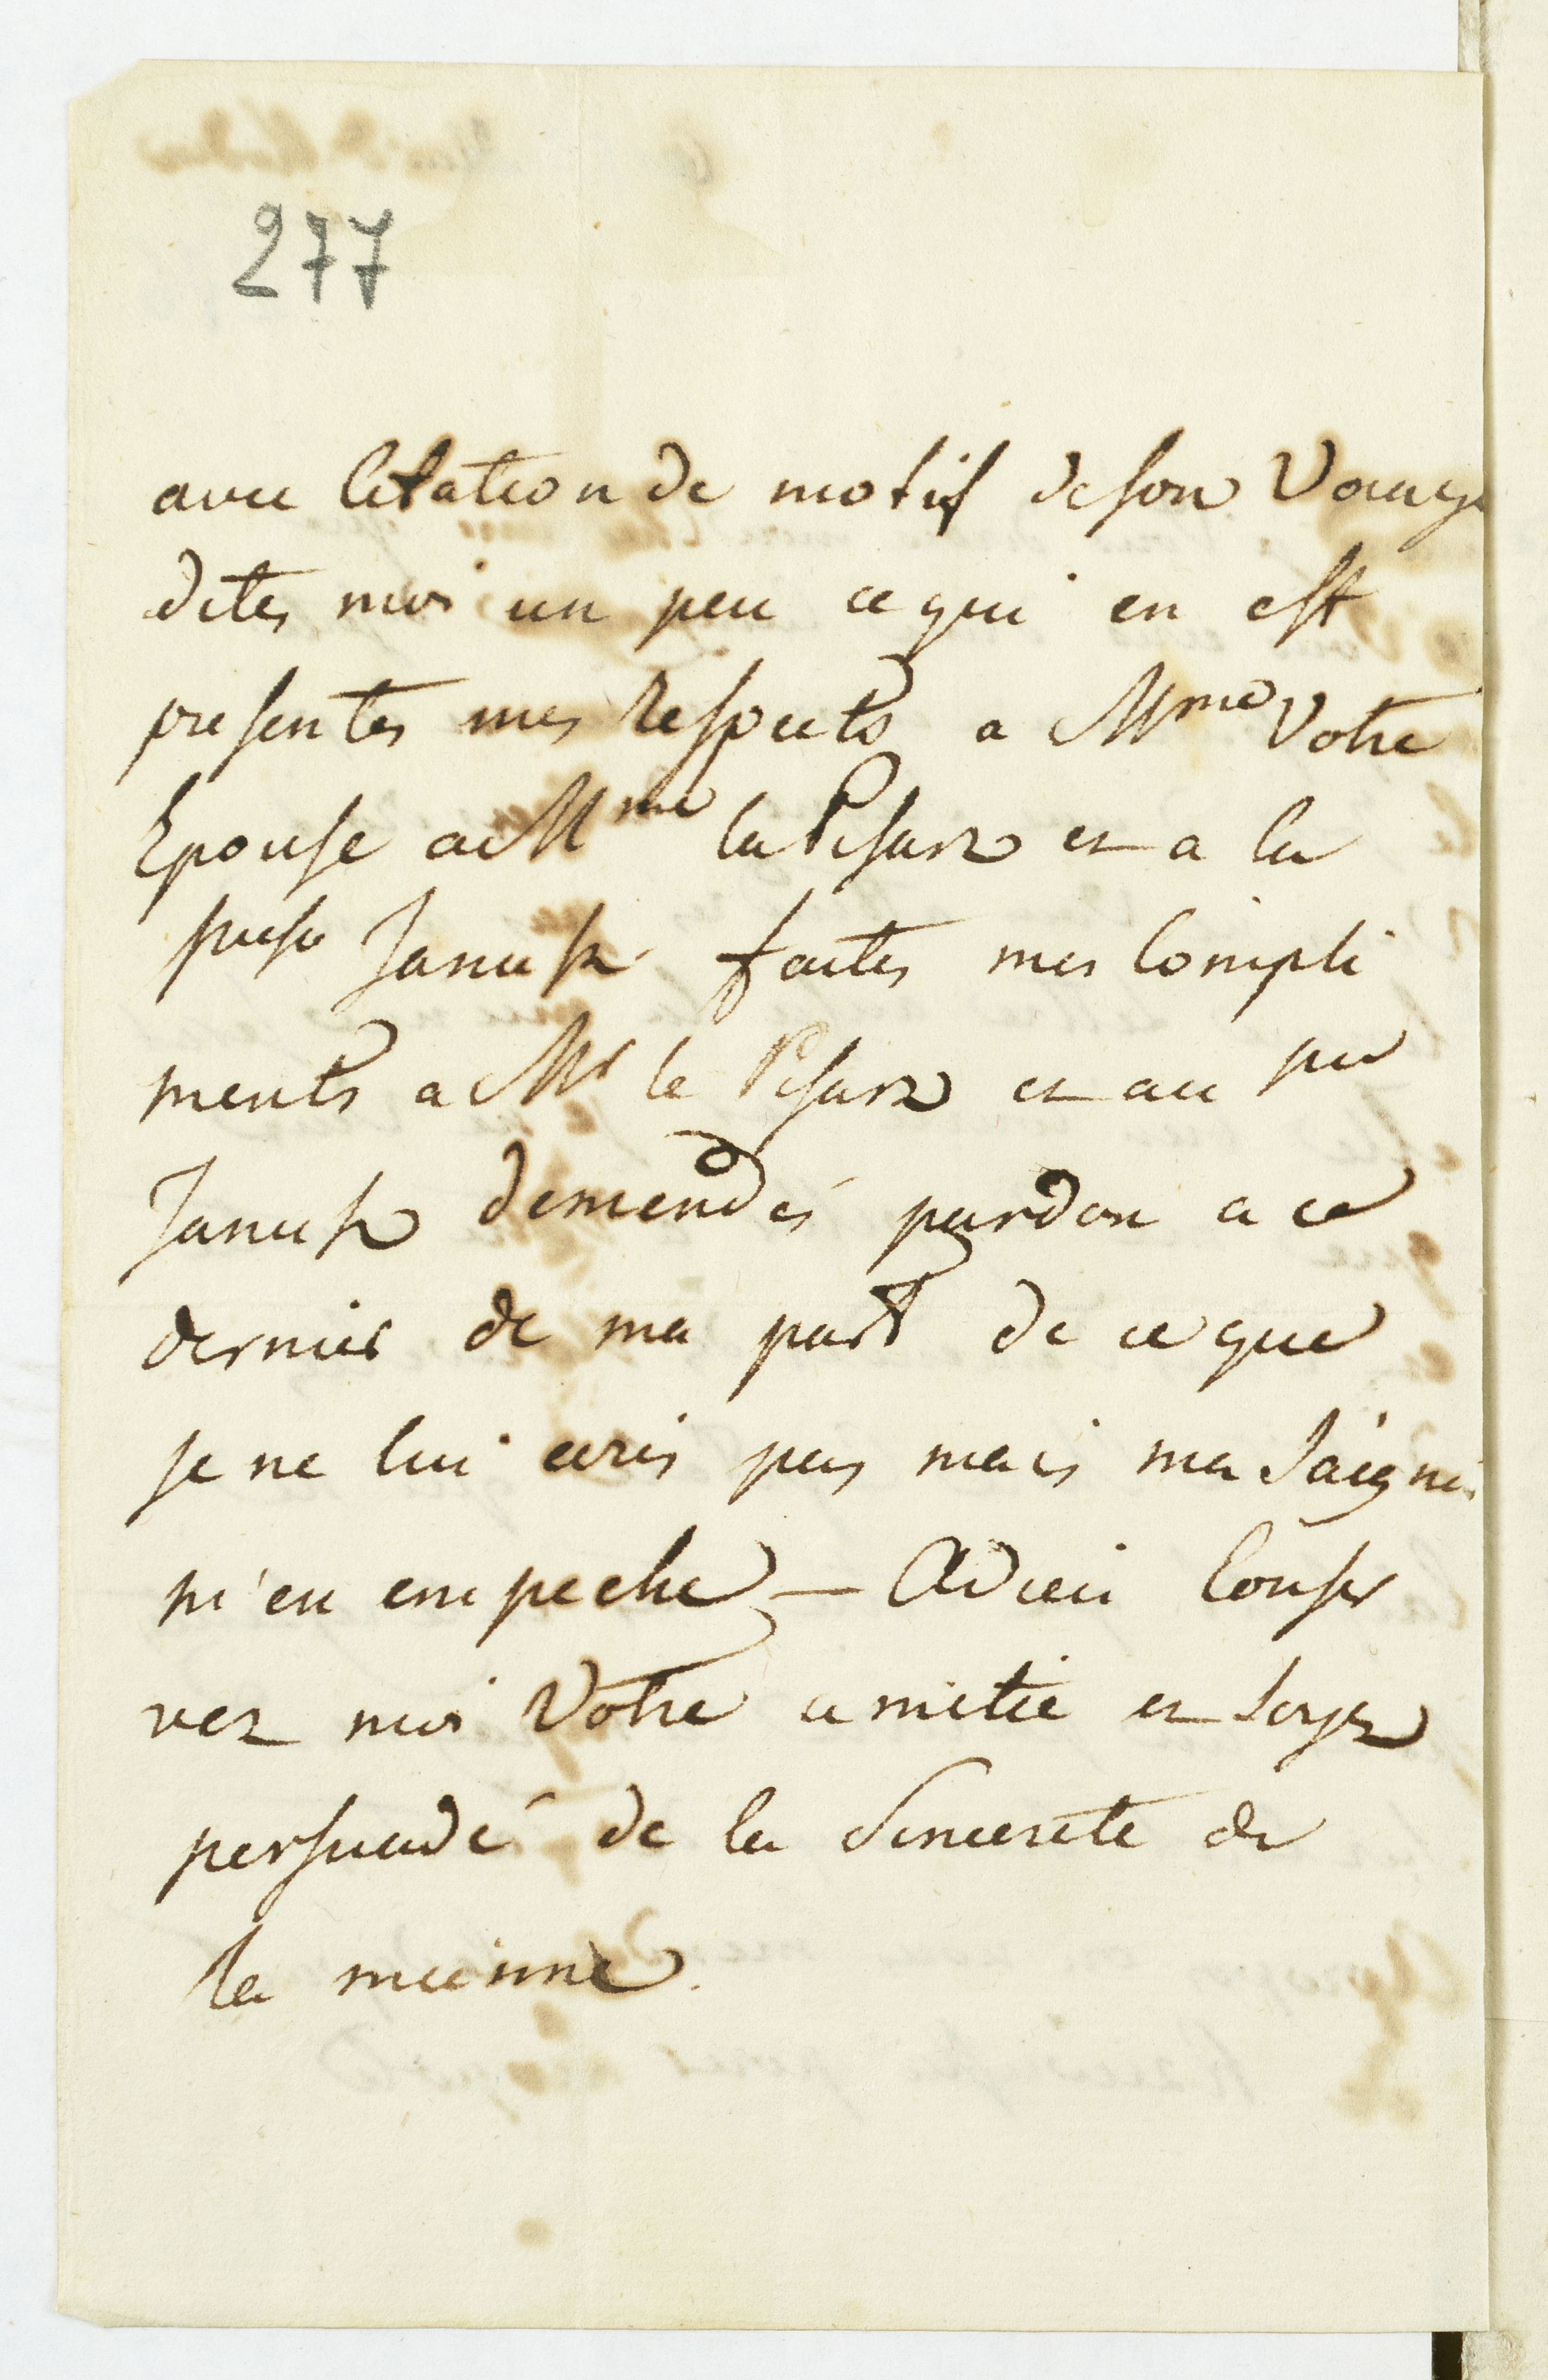 277
avec Citation de motif de son Voiage
dites moi un peu ce qui en est
presentes mes Respects a Mme Votre
Epouse a Mme la Pisarz et a la
Janusz faites mes Compli
ments a Mr le Pisarz et au
Janusz demendés pardon a ce
dernier de ma part de ce que
je ne lui ecris pas mais ma Saigné
m'en empeche — Adieu Conser
vez moi Votre amitié et soyez
persuadé de la Sincerete de
la mienne.